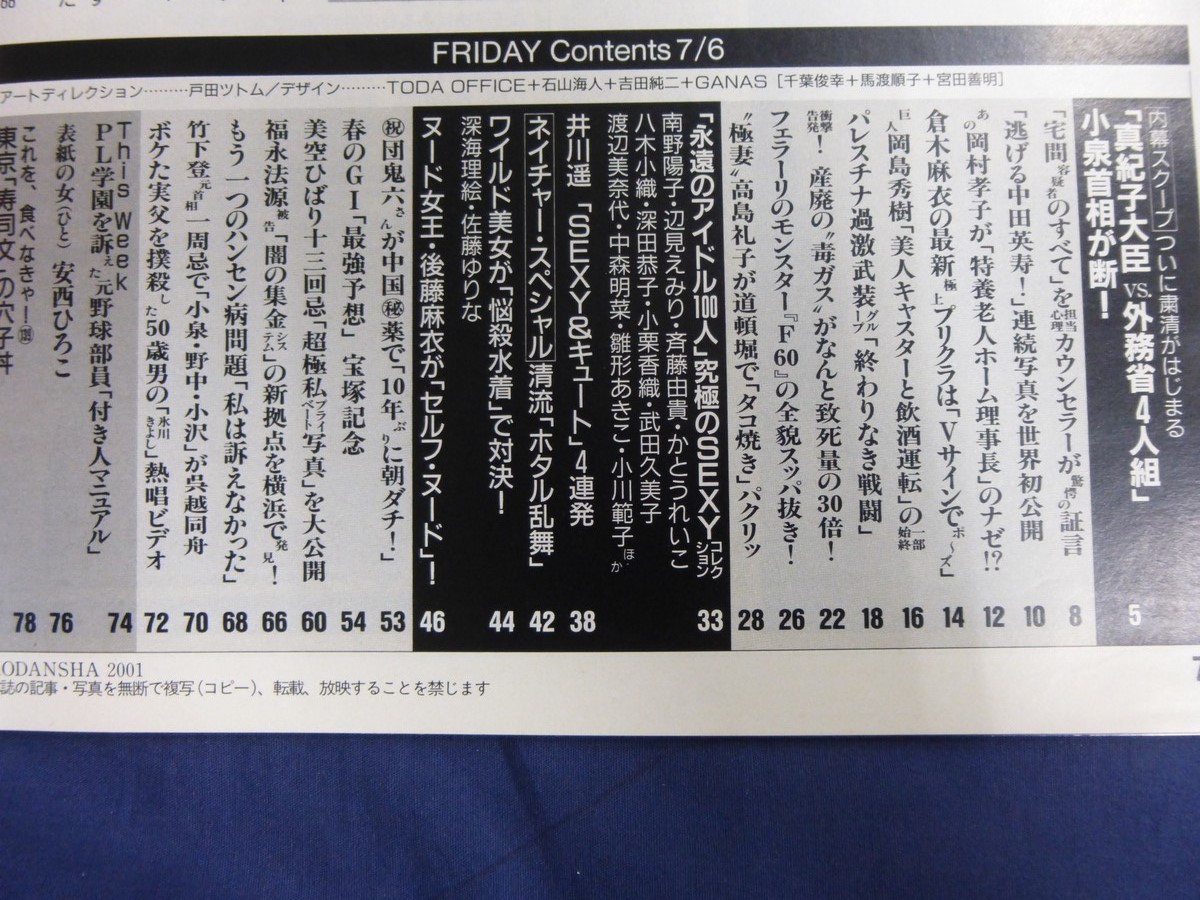 FRIDAY Contents 7/6
アートディレクション………戸田ツトム/デザイン………TODA OFFICE+石山海人+吉田純二+GANAS [千葉俊幸+馬渡順子+宮田善明]
内幕スクープ ついに粛清がはじまる
「真紀子大臣 VS. 外務省4人組」
小泉首相が断! 5
「宅間容疑者のすべて」を担当心理カウンセラーが驚愕の証言 8
「逃げる中田英寿!」連続写真を世界初公開 10
あの岡村孝子が「特養老人ホーム理事長」のナゼ!? 12
倉木麻衣の最新極上プリクラは「Vサインでポ〜ズ」 14
巨人岡島秀樹「美人キャスターと飲酒運転」の一部始終 16
パレスチナ過激武装グループ「終わりなき戦闘」 18
衝撃告発! 産廃の〝毒ガス〟がなんと致死量の30倍! 22
フェラーリのモンスター『F60』の全貌スッパ抜き! 26
〝極妻〟高島礼子が道頓堀で「タコ焼き」パクリッ 28
「永遠のアイドル100人」究極のSEXYコレクション 33
南野陽子・辺見えみり・斉藤由貴・かとうれいこ
八木小織・深田恭子・小栗香織・武田久美子
渡辺美奈代・中森明菜・雛形あきこ・小川範子ほか
井川遥「SEXY&キュート」4連発 38
ネイチャー・スペシャル 清流「ホタル乱舞」 42
ワイルド美女が「悩殺水着」で対決! 44
深海理絵・佐藤ゆりな
ヌード女王・後藤麻衣が「セルフ・ヌード」! 46
㊗団鬼六さんが中国㊙薬で「10年ぶりに朝ダチ!」 53
春のGI「最強予想」 宝塚記念 54
美空ひばり十三回忌「超極私プライベート写真」を大公開 60
福永法源被告「闇の集金システム」の新拠点を横浜で発見! 66
もう一つのハンセン病問題「私は訴えなかった」 68
竹下登元首相一周忌で「小泉・野中・小沢」が呉越同舟 70
ボケた実父を撲殺した50歳男の「氷川きよし」熱唱ビデオ 72
This Week
PL学園を訴えた元野球部員「付き人マニュアル」 74
表紙の女(ひと) 安西ひろこ 76
これを、食べなきゃー
東京「寿司文」の穴子丼 78
ODANSHA 2001
誌の記事・写真を無断で複写(コピー)、転載、放映することを禁じます